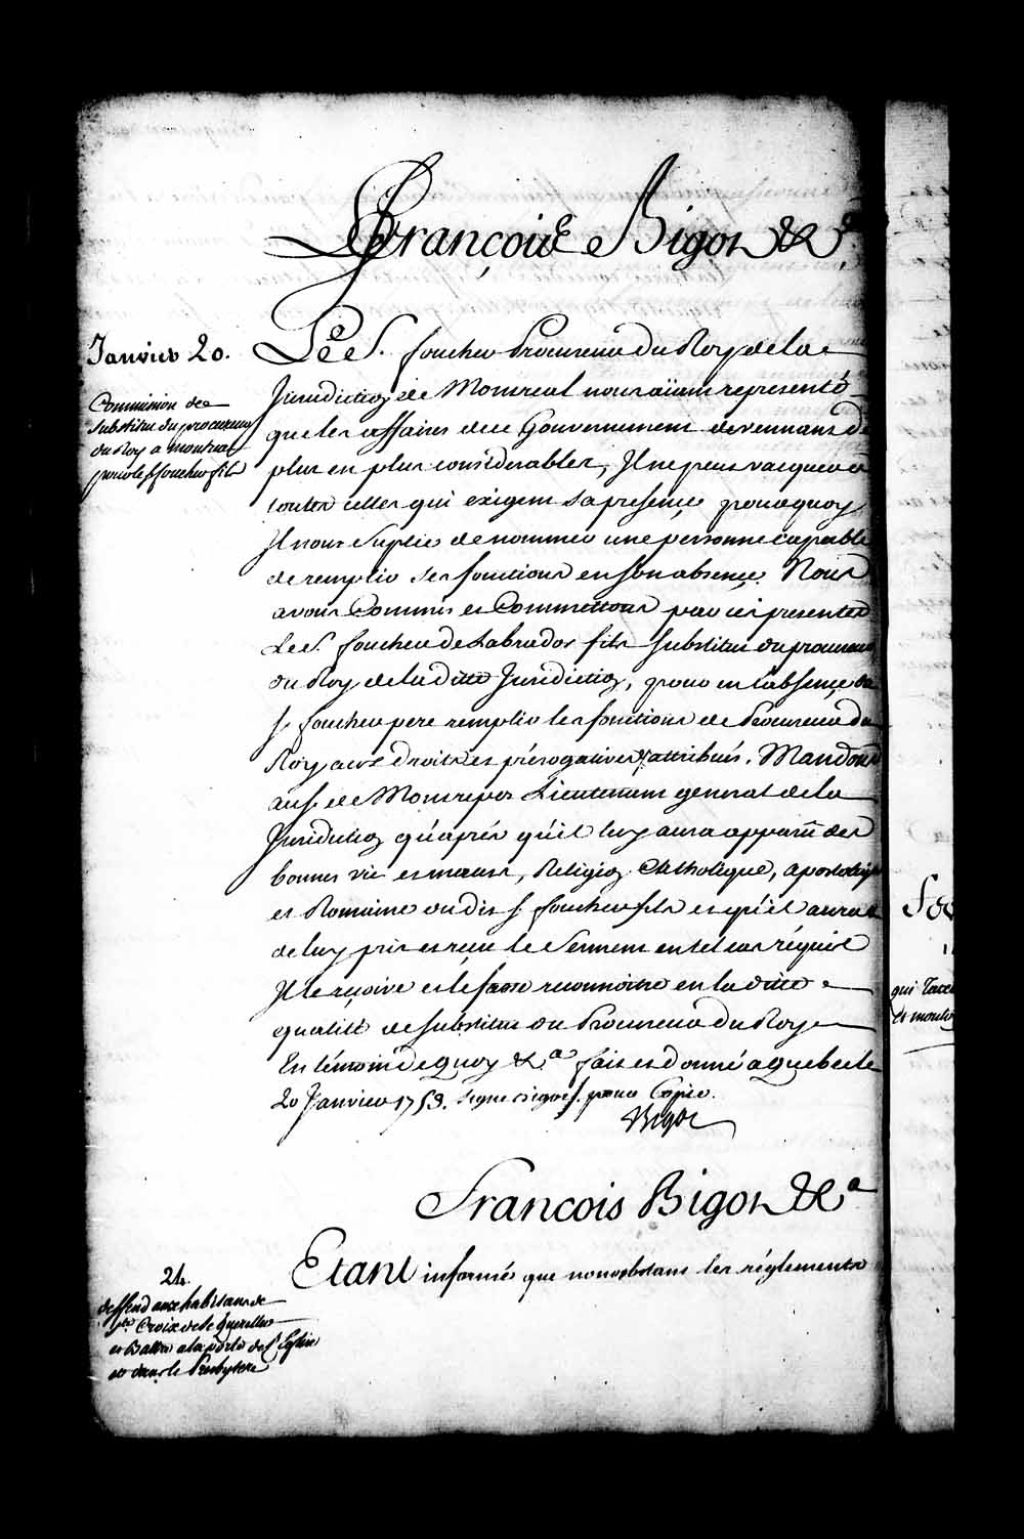 François Bigot &.a
Janvier 20.
Commission de
substitut du procureur
du Roy a montreal
pour le S. foucher fils
Le S. foucher Procureur Du Roy de la
Jurisdiction de Montreal nous aïant representé
que les affaires de ce Gouvernement devennans de
plus en plus considerables, Il ne peut vacquer a
toutes celles qui exigent sa presence pourquoy
Il nous Suplie de nommer une personne capable
de remplir ses fonctions en son absence. Nous
avons Commis et Commettons par ces presentes
Le S. foucher de Labrador fils substitut du procureur
du Roy de la ditte Jurisdiction, pour en l'absence du
S. foucher pere remplir les fonctions de Procureur du
Roy aux droits et prérogatives y attribués. Mandons
au S. de Monrepos Lieutenant general de la
Jurisdiction qu'aprés qu'il luy aura apparû des
bonnes vie et mœurs, Religion Catholique, apostolique
et Romaine du dit S. foucher fils et qu'il aura
de luy pris et reçu le Serment en tel cas réquis
Il le reçoive et le fasse reconnoitre en la ditte
qualité de substitut du Procureur Du Roy
En témoin De quoy &.a fait et donné a Quebec le
20 Janvier 1753. signé Bigot. pour Copie.
Bigot
François Bigot &.a
Etant informés que nonobstant les réglements
24.
deffend aux habitans de
Ste Croix de se Quereller
et Battre a la porte de l'Eglise
et dans le Presbytere
qui
et